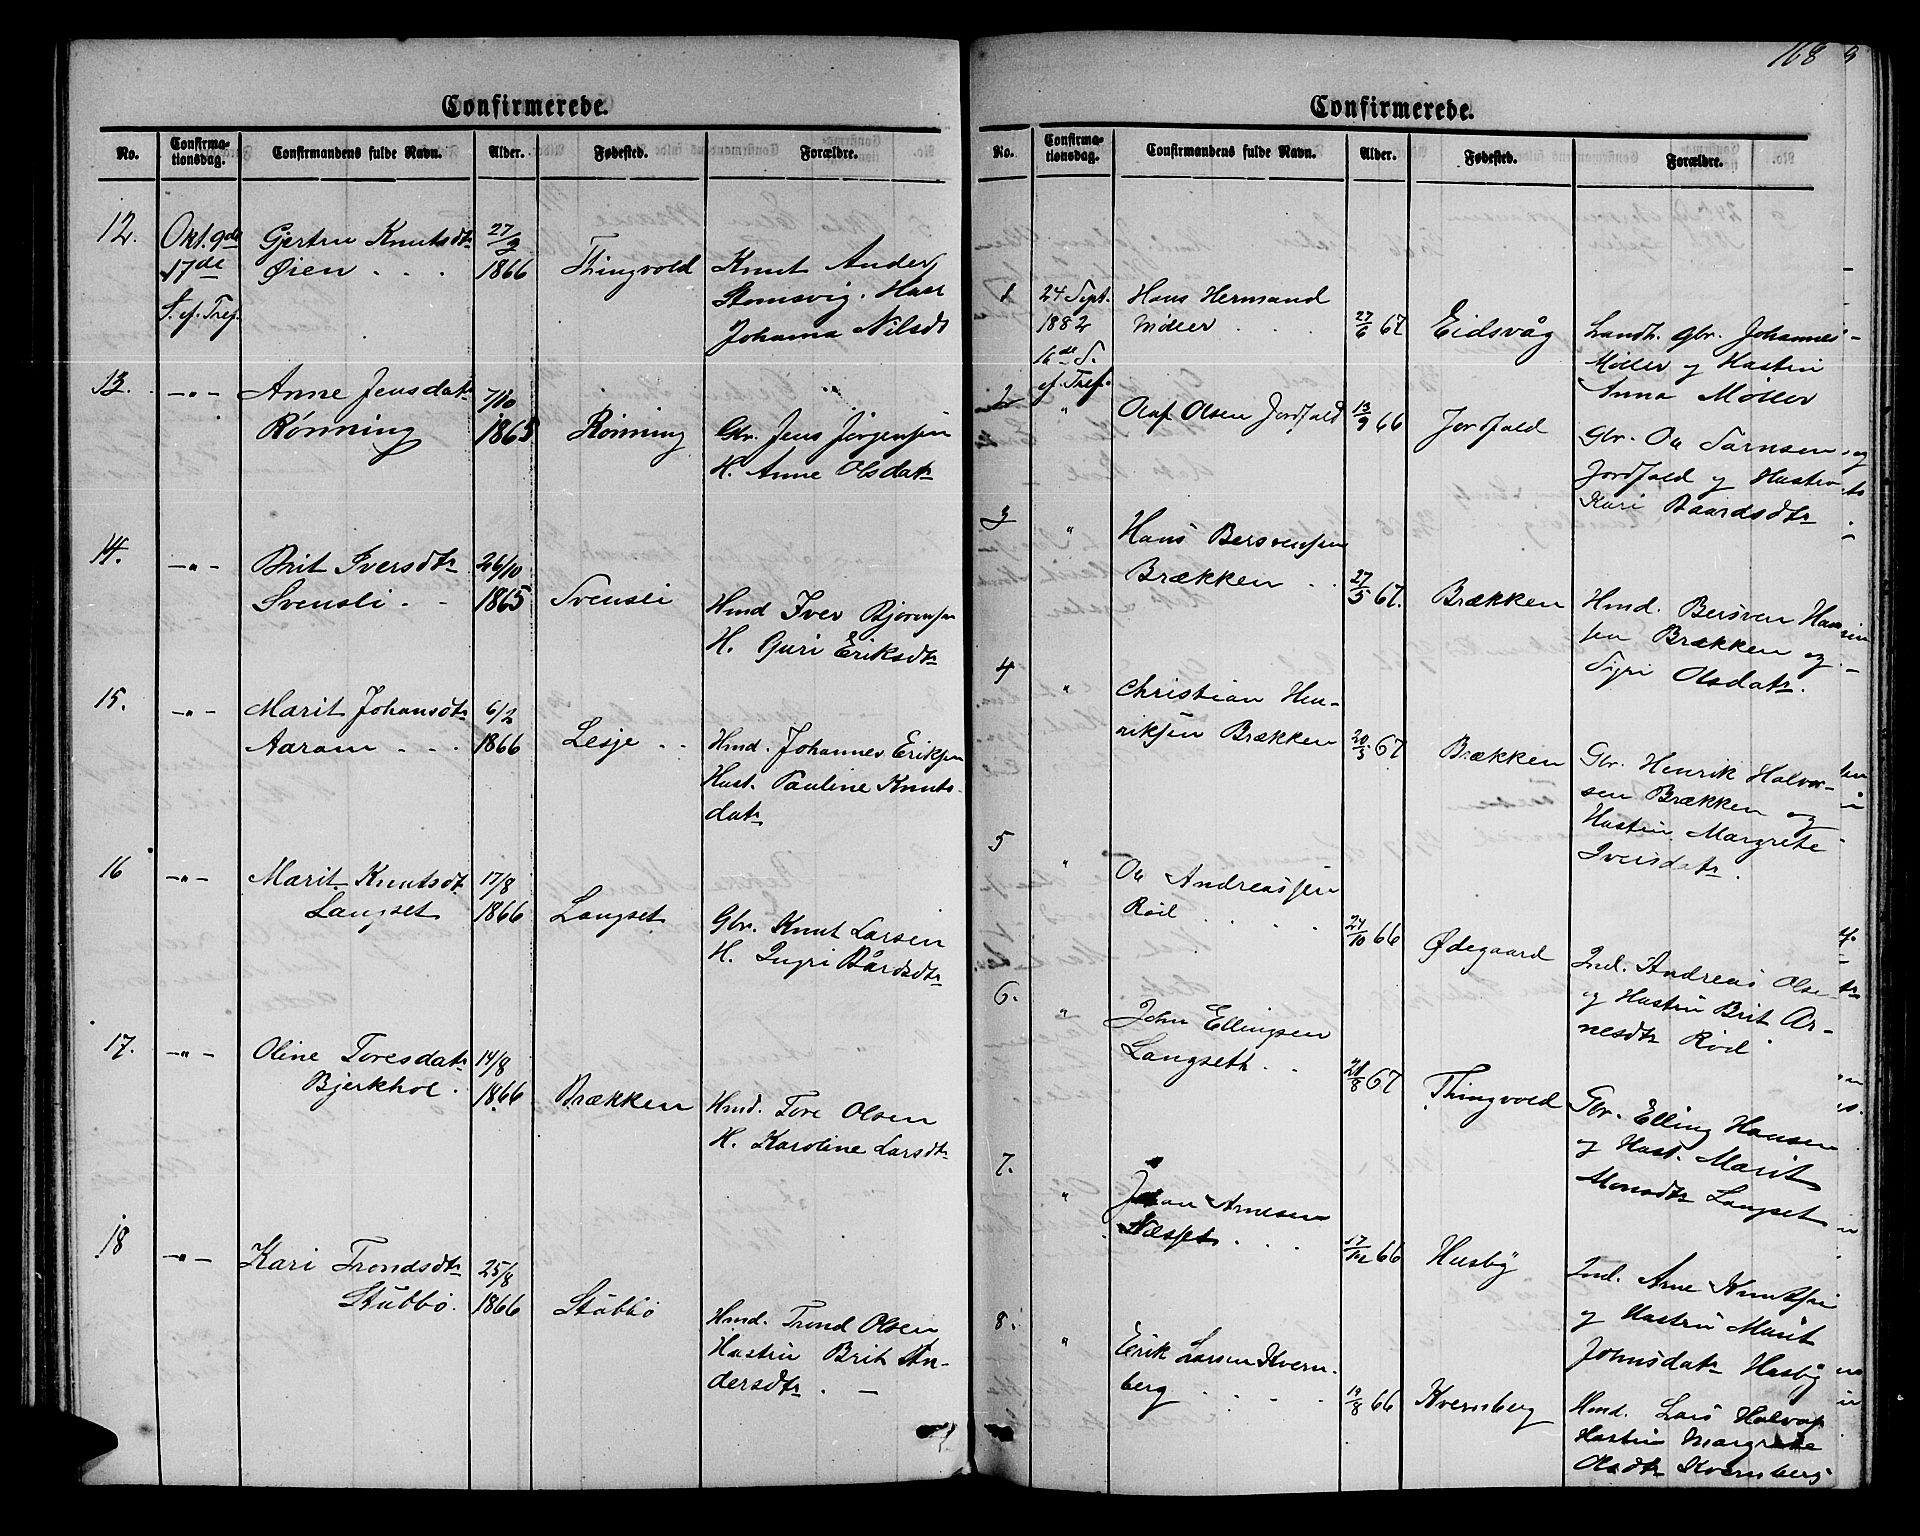 168
Confirmerede.
No. Confirma- tionsdag. Confirmandens fulde Navn. Alder. Fødested. Forældre.
12. Okt. 9de Gjertru Knutsdtr 27/9
17de Øien . . . 1866 Thingvold Knut Anders
S. ef. Tref. Stomsvig. Hust
Johanna Nilsdt
13. —"— Anne Jensdatr 7/10
Rønning 1865 Rønning Gbr. Jens Jørgensen
H. Anne Olsdatr
14. —"— Brit Iversdtr 26/10
Svensli . - 1865 Svensli Hmd Iver Bjørnsen
H. Guri Eriksdtr
15. —"— Marit Johansdtr 6/2
Aaram . . . 1866 Lesje . . Hmd. Johannes Eriksen
Hust. Pauline Knuts-
datr
16 —"— Marit Knutsdtr 17/8
Langset 1866 Langset Gbr. Knut Larsen
H. Ingri Bårdsdtr
17. —"— Oline Toresdatr 14/8
Bjerkhol . 1866 Brækken Hmd. Tore Olsen
H. Karoline Larsdtr
18 —"— Kari Trondsdtr 25/8
Stubbø. 1866 Stubbø Hmd. Trond Olsen
Hustru Brit An-
dersdtr . —
Confirmerede.
No. Confirma- tionsdag. Confirmandens fulde Navn. Alder. Fødested. Forældre.
1 24 Sept. Hans Hermand
1882 Møller . . . 27/6 67 Eidsvåg Landh. Gbr. Johannes
16de S. Møller og Hustru
ef. Tref. Anna Møller
2 " Olaf Olsen Jordfald 13/9 66 Jordfald Gbr. Ola
Jordfald og Hustru
Kari Baardsdtr
3 " Hans Bersvensen
Brækken . . 27/5 67. Brækken Hmd. Bersven Han
sen Brækken og
Sigri Olsdatr.
4 " Christian Hen-
riksen Brækken 20/3 67 Brækken Gbr. Henrik Halvor-
sen Brækken og
Hustru Margrete
Iversdatr.
5 " Ola Andreassen
Rød . . . 24/10 66 Ødegaard Ind. Andreas Olse
og Hustru Brit Ar-
nesdtr Rød
6. " John Ellingsen
Langseth . . 28/8 67 Thingvold Gbr. Elling Hansen
og Hust. Marit
Monsdtr Langset
7. " Johan Arnesen
Næsset . . . 17/12 66 Husby Ind. Arne Knutsen
og Hustru Marit
Johnsdatr Husby
8. " Erik Larsen Kvern-
berg . . . . 19/8 66 Kvernberg Hmd. Lars Halvors
Hustru Margrete
Olsdtr Kvernberg